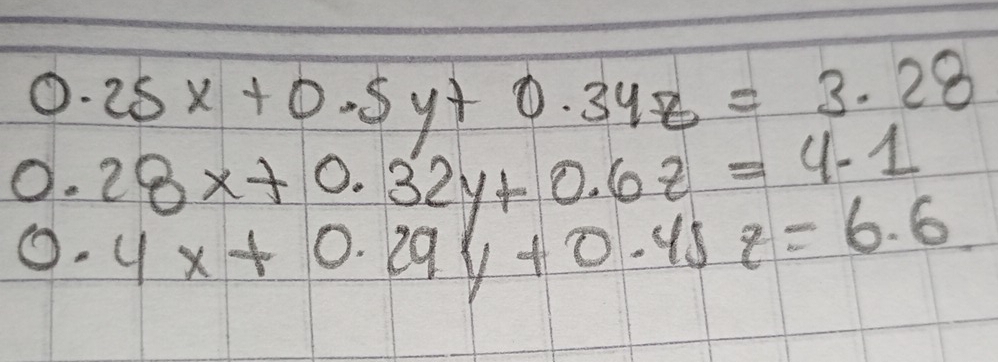 0.25x + 0.5y + 0.34z = 3.28
0.28x + 0.32y + 0.6z = 4.1
0.4x + 0.29y + 0.45z = 6.6